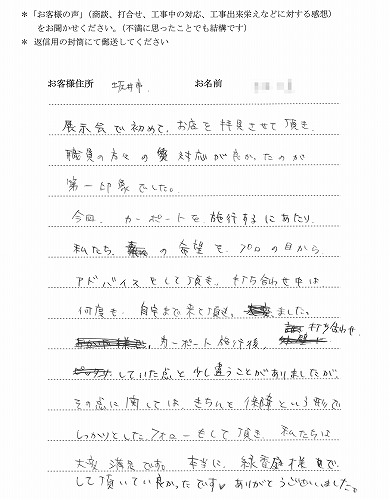 ＊「お客様の声」（商談、打合せ、工事中の対応、工事出来栄えなどに対する感想）
をお聞かせください。（不満に思ったことでも結構です）
＊ 返信用の封筒にて郵送してください
お客様住所 坂井市. お名前
展示会で初めて、お店を拝見させて頂き
職員の方々の 対応が良かったのが
第一印象でした。
今回、カーポートを施行するにあたり、
私たち の希望を、プロの目から
アドバイスをして頂き、打ち合わせ中は
何度も、自宅まで来て頂き、ました。
打ち合わせ
カーポート施行後、
していた点と少し違うことがありましたが、
その点に関しては きちんと 保障という形で
しっかりとしたフォローをして頂き、私たちは
大変満足です。本当に、緑香庭様で
して頂いて良かったです♥ ありがとうございました。